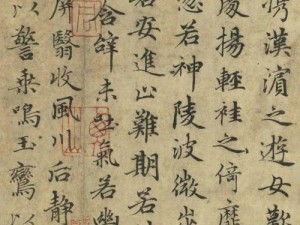 携漢濱之遊女歎
處揚輕袿之倚靡
忽若神陵波微步
若安進止難期若
含辝未吐氣若幽
屏翳收風川后静
以警乗鳴玉鸞以